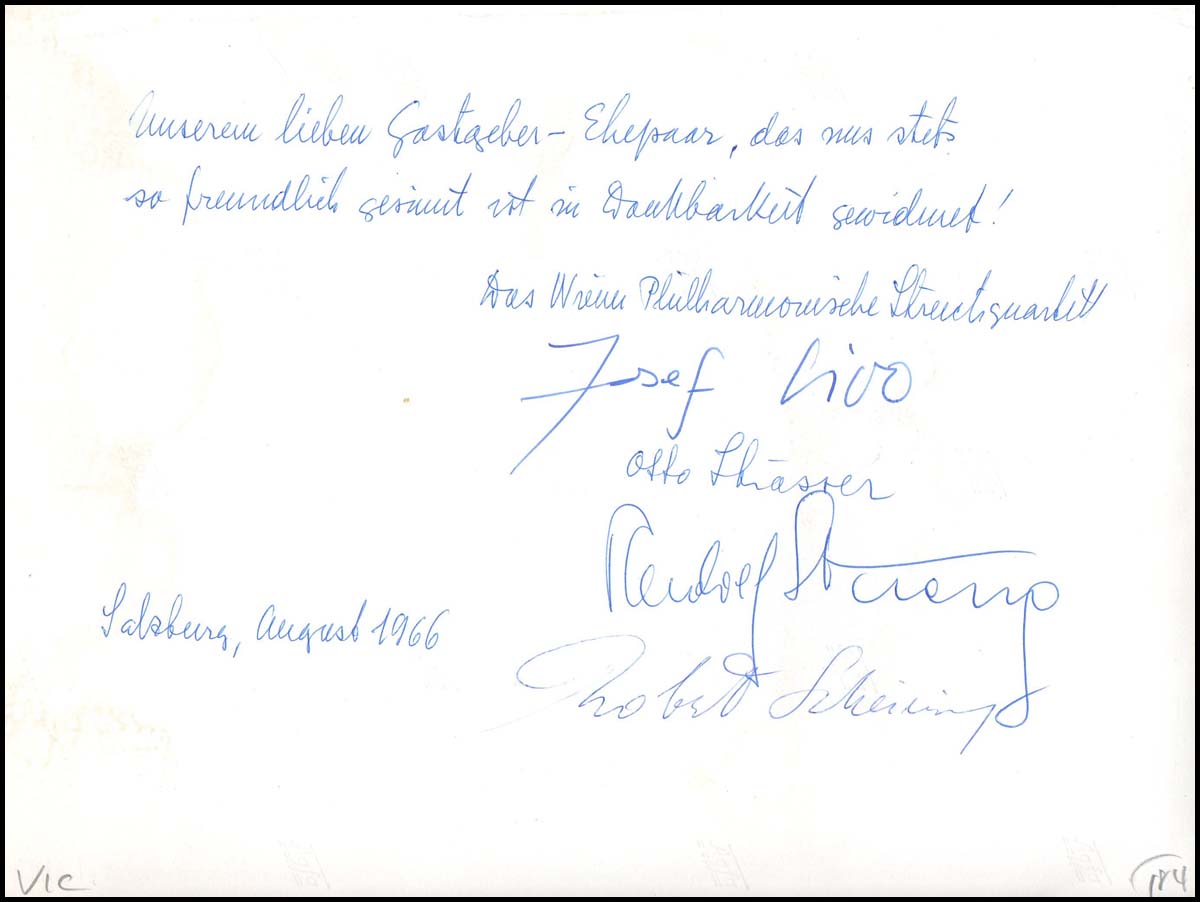 Unserem lieben Gastgeber-Ehepaar, das uns stets
so freundlich gesinnt ist in Dankbarkeit gewidmet!
Das Wiener Philharmonische Streichquartett
Josef Sivo
Otto Strasser
Rudolf Streng
Salzburg, August 1966
Robert Scheiwein
VIC
184